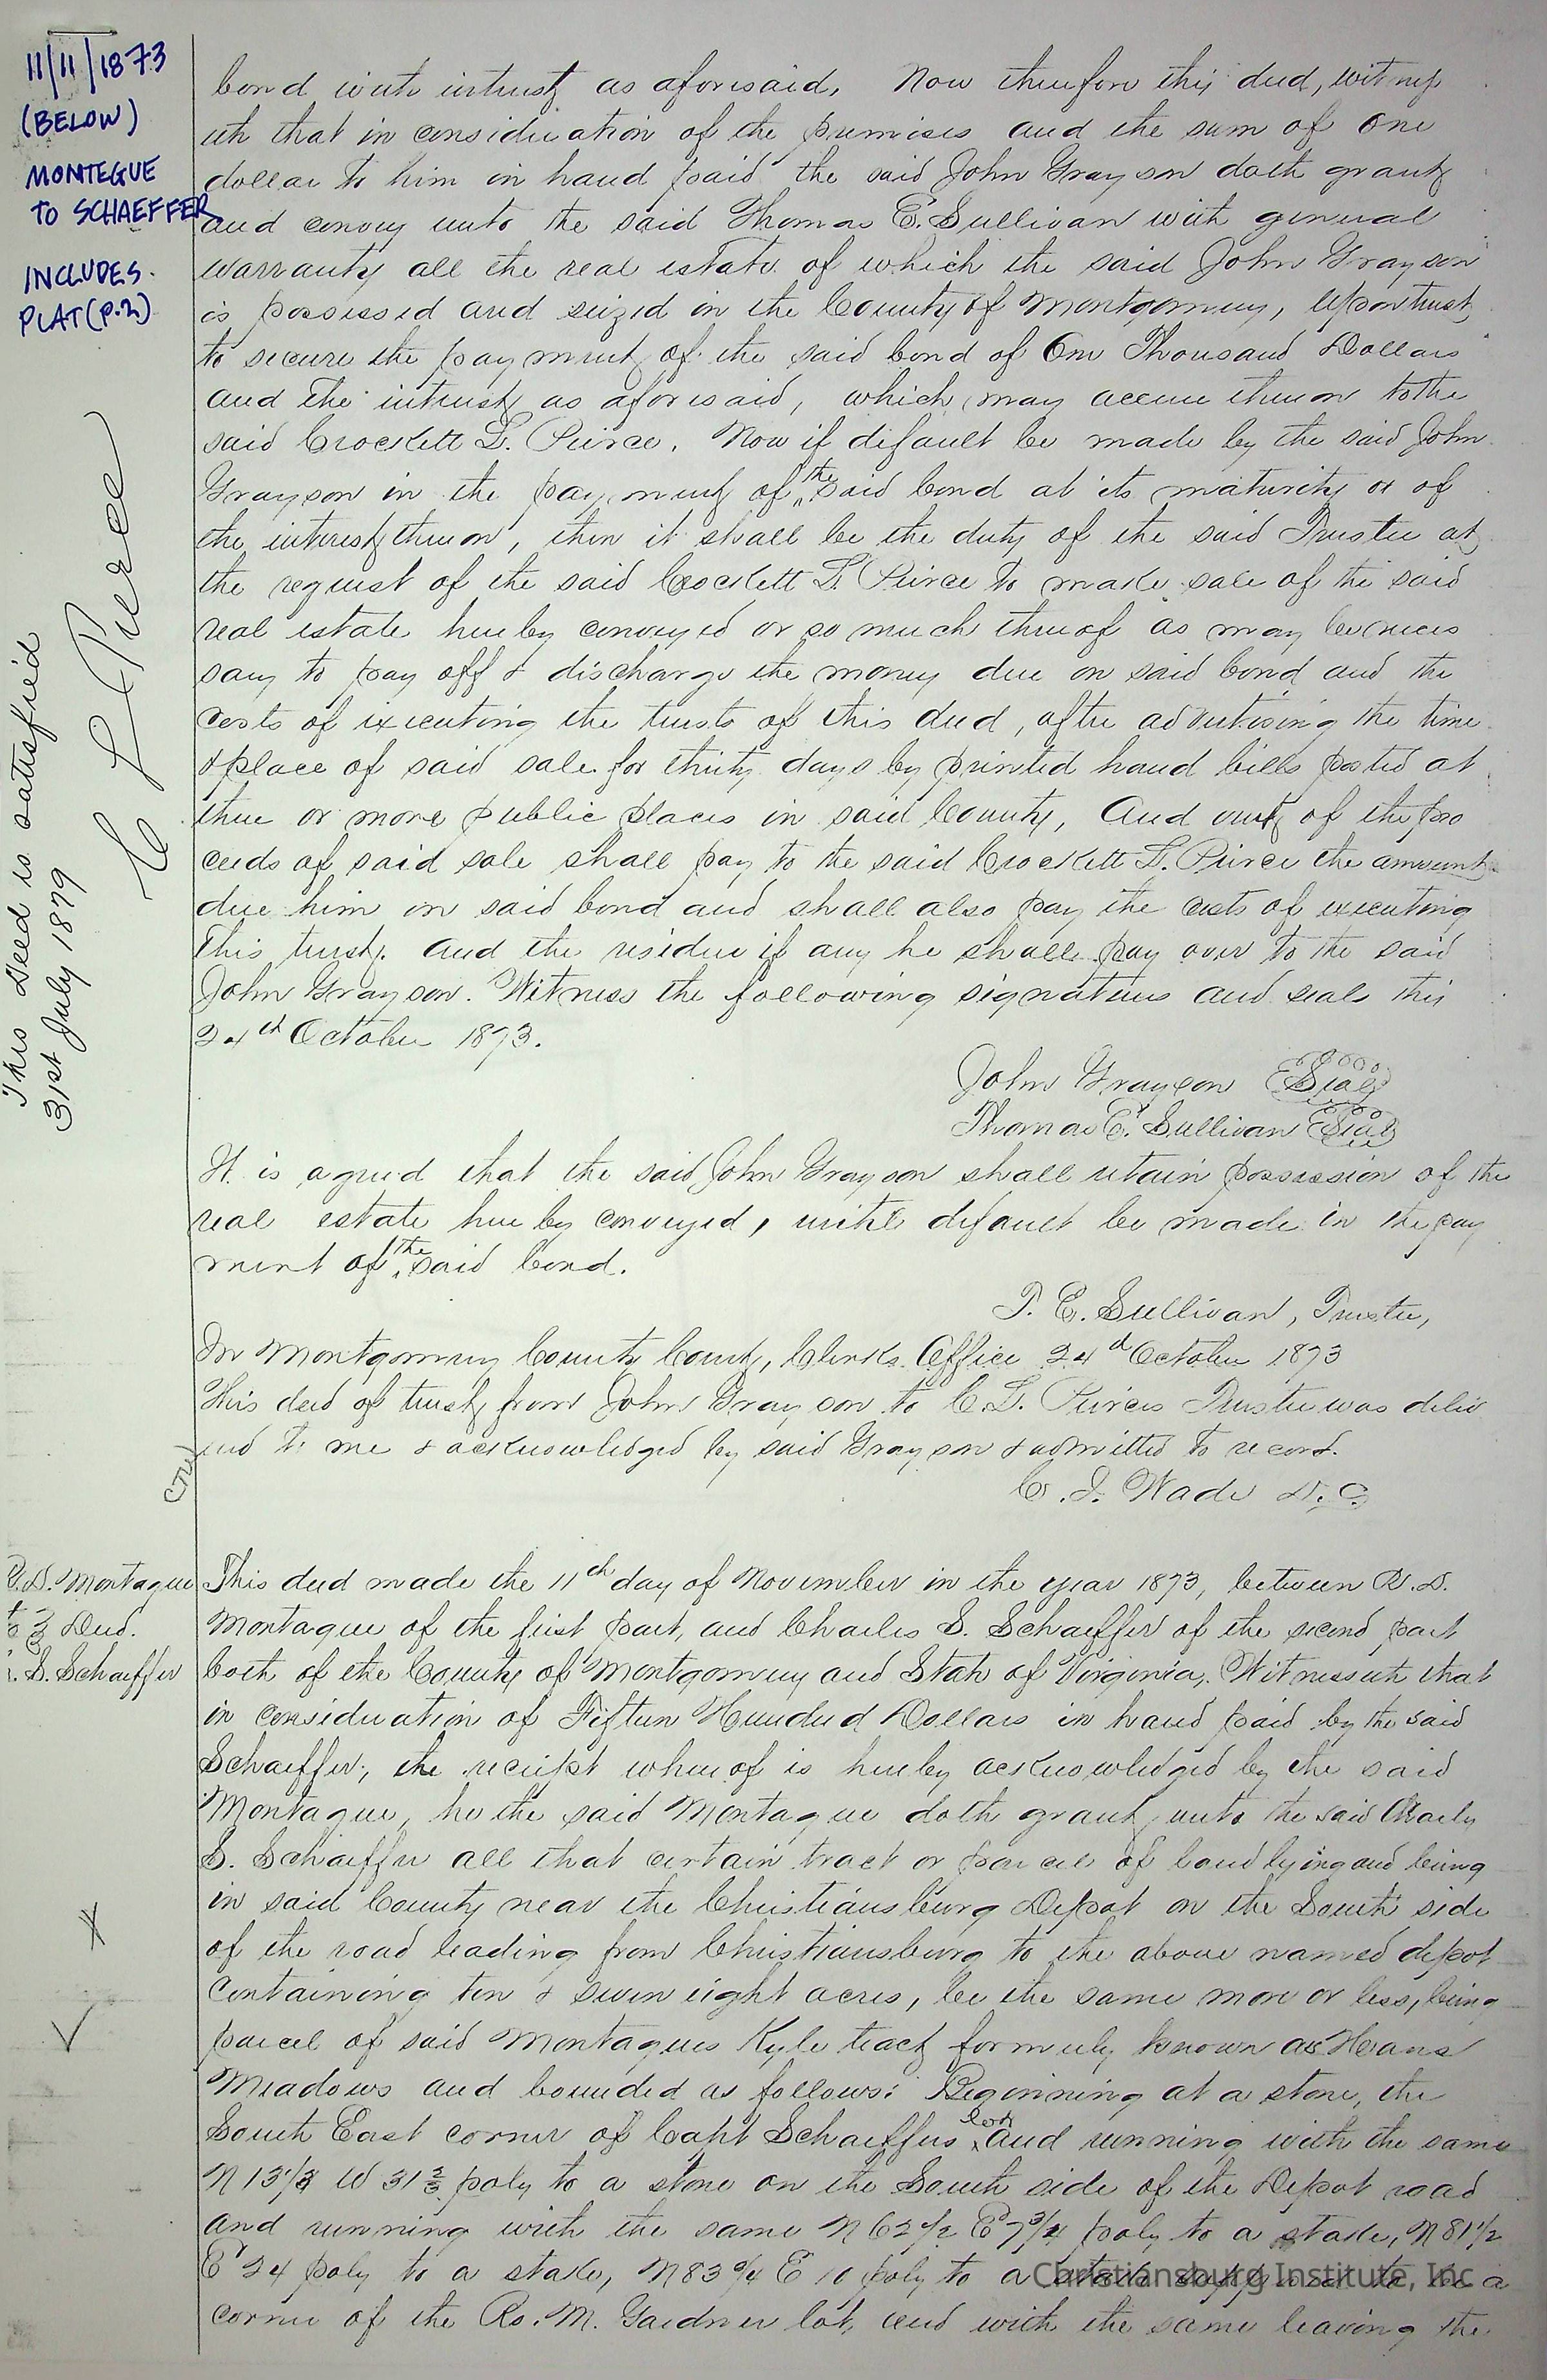 11/11/1873
(BELOW)
MONTEGUE
TO SCHAEFFER
INCLUDES
PLAT (P.2)
This deed is satisfied
31st July 1879
C L Pierce
bond with interest as aforesaid, Now therefore this deed, witness
eth that in consideration of the premises and the sum of one
dollar to him in hand paid the said John Grayson doth grant
and convey unto the said Thomas E. Sullivan with general
warranty all the real estate of which the said John Grayson
is possessed and seized in the County of Montgomery, Upon trust
to secure the payment of the said bond of One Thousand Dollars
and the interest as aforesaid, which may accrue thereon to the
said Crockett L. Peirce. Now if default be made by the said John
Grayson in the payment of the said bond at its maturity or of
the interest thereon, then it shall be the duty of the said Trustee at
the request of the said Crockett L. Peirce to make sale of the said
real estate hereby conveyed or so much thereof as may be neces
sary to pay off & discharge the money due on said bond and the
costs of executing the trusts of this deed, after advertising the time
& place of said sale for thirty days by printed hand bills posted at
three or more public places in said County, And out of the pro
ceeds of said sale shall pay to the said Crockett L. Peirce the amount
due him on said bond and shall also pay the costs of executing
this trust. and the residue if any he shall pay over to the said
John Grayson. Witness the following signatures and seals this
24th October 1873.
John Grayson Seal
Thomas E. Sullivan Seal
It is agreed that the said John Grayson shall retain possession of the
real estate hereby conveyed, until default be made in the pay
ment of the said bond.
T. E. Sullivan, Trustee,
In Montgomery County Court, Clerks Office 24th October 1873
This deed of trust from John Grayson to C. L. Peirces Trustee was deliv
ered to me & acknowledged by said Grayson & admitted to record.
C. I. Wade D. C.
R. D. Montague
to } Deed.
C. S. Schaeffer
This deed made the 11th day of November in the year 1873, between R. D.
Montague of the first part, and Charles S. Schaeffer of the second part
both of the County of Montgomery and State of Virginia, Witnesseth that
in consideration of Fifteen Hundred Dollars in hand paid by the said
Schaeffer, the receipt whereof is hereby acknowledged by the said
Montague, he the said Montague doth grant unto the said Charles
S. Schaeffer all that certain tract or parcel of land lying and being
in said County near the Christiansburg Depot on the South side
of the road leading from Christiansburg to the above named depot
containing ten & seven eight acres, be the same more or less, being
parcel of said Montagues Kyle tract formerly known as Hans
Meadows and bounded as follows: Beginning at a stone, the
South East corner of Capt Schaeffers lot and running with the same
N 13 1/3 W 31 2/3 poles to a stone on the South side of the Depot road
and running with the same N 62 1/2 E 7 3/4 poles to a stake, N 81 1/2
E 24 poles to a stake, N 83 3/4 E 10 poles to a
corner of the Ro. M. Gardner lot, and with the same leaving the
Christiansburg Institute, Inc